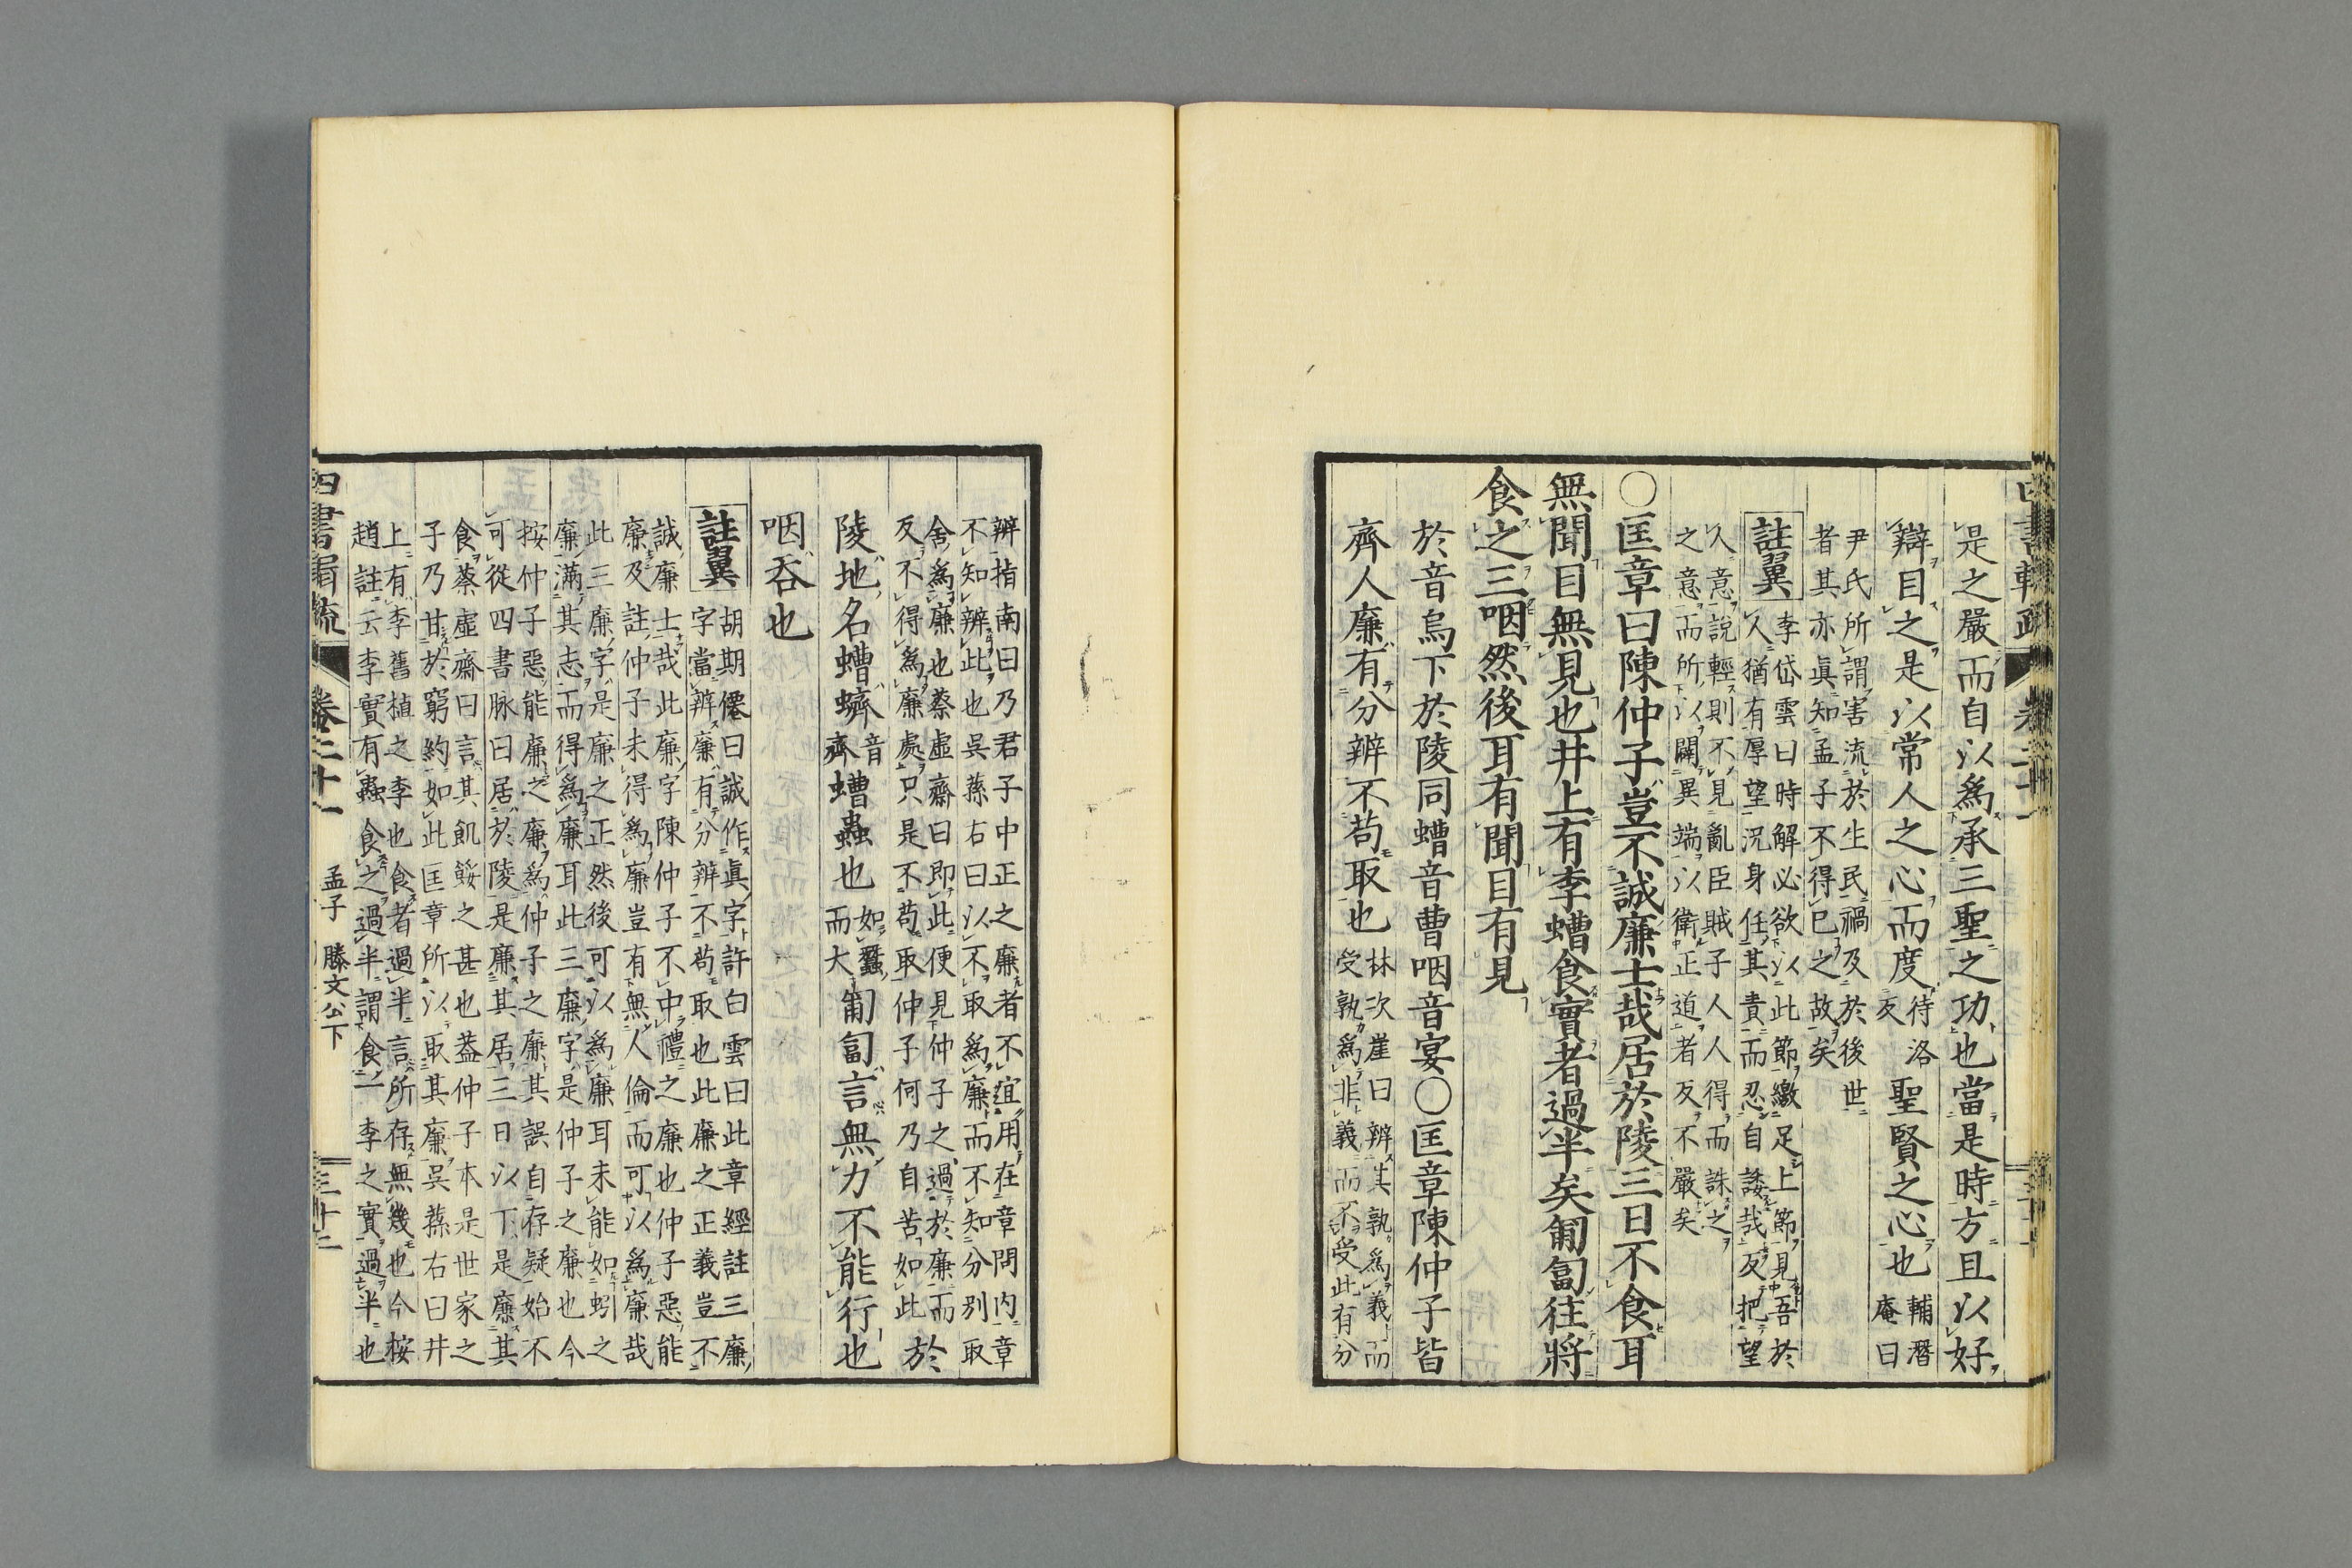 是之嚴而自以爲承三聖之功也當是時方且以好
辯目之是以常人之心而度待洛反聖賢之心也輔潛庵曰
尹氏所謂害流於生民禍及於後世
者其亦眞知孟子不得已之故矣
註翼
李岱雲曰時解必欲以此節繳足上節見吾於
久猶有厚望況身任其責而忍自諉哉反把望
久意說輕則不見亂臣賊子人人得而誅之
之意而所以闢異端以衛正道者反不嚴矣
○匡章曰陳仲子豈不誠廉士哉居於陵三日不食耳
無聞目無見也井上有李螬食實者過半矣匍匐往將
食之三咽然後耳有聞目有見
於音烏下於陵同螬音曹咽音宴○匡章陳仲子皆
齊人廉有分辨不苟取也
林次崖曰辨其孰爲義而
受孰爲非義而不受此有分
辨指南曰乃君子中正之廉者不宜用在章問内章
不知辨此也吳蓀右曰以不取爲廉而不知分別取
舍爲廉也蔡虛齋曰即此便見仲子之過於廉而於
反不得爲廉處只是不苟取仲子何乃自苦如此
陵地名螬蠐音齊螬蟲也如蠶而大匍匐言無力不能行也
咽吞也
註翼
胡期僊曰誠作眞字許白雲曰此章經註三廉
字當辨廉有分辨不苟取也此廉之正義豈不
誠廉士哉此廉字陳仲子不中禮之廉也仲子惡能
廉及註仲子未得爲廉豈有無人倫而可以爲廉哉
此三廉字是廉之正然後可以爲廉耳未能如蚓之
廉滿其志而得爲廉耳此三廉字是仲子之廉也今
按仲子惡能廉之廉爲仲子之廉其誤自存疑始不
可從四書脉曰居於陵是廉其居三日以下是廉其
食蔡虛齋曰言其飢餒之甚也蓋仲子本是世家之
子乃甘於窮約如此匡章所以取其廉吳蓀右曰井
上有李舊植之李也食者過半言所存無幾也今按
趙註云李實有蟲食之過半謂食一李之實過半也
卷二十一
孟子 滕文公下
三十二